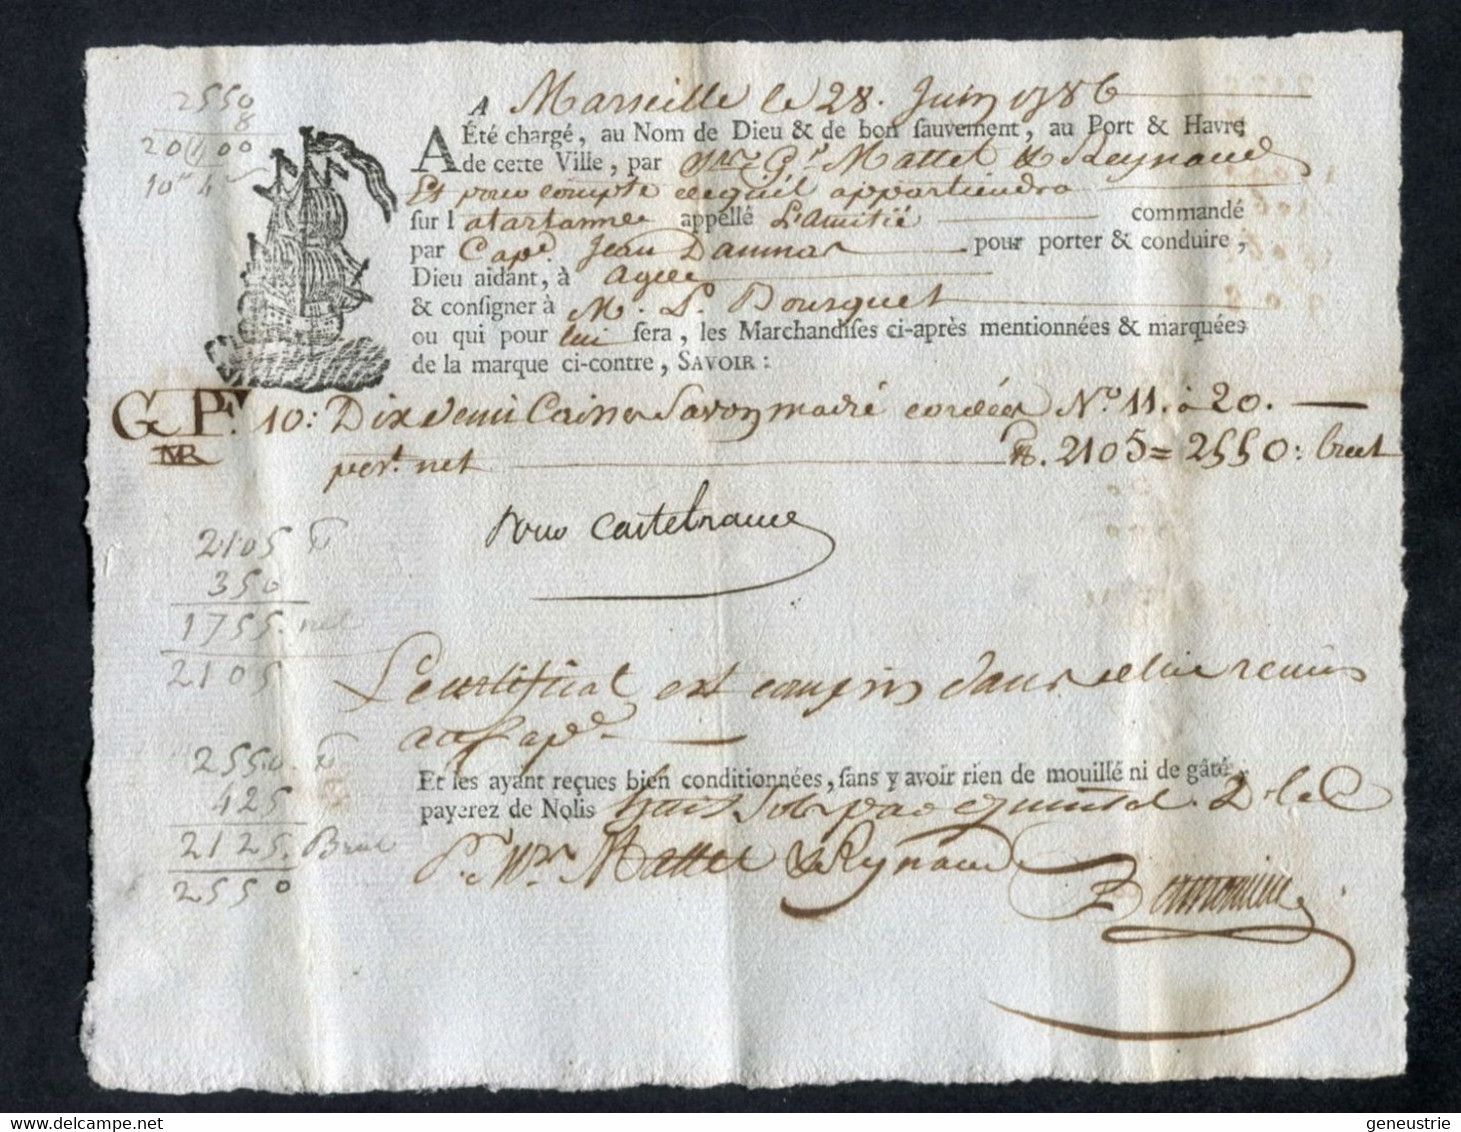 A Marseille le 28. Juin 1786
A Été chargé, au Nom de Dieu & de bon sauvement, au Port & Havre
de cette Ville, par Mrs. Gl. Mattet & Reynaud
Et pour compte de qui il appartiendra
sur la tartanne appellé L'amitié commandé
par Cape. Jean Daumas pour porter & conduire,
Dieu aidant, à agde
& consigner à M. L. Bousquet
ou qui pour lui sera, les Marchandises ci-après mentionnées & marquées
de la marque ci-contre, SAVOIR :
G P. 10: Dix demi Caisses Savon madré cordées No. 11. à 20.
MR
net 2105 = 2550: brut
pour Castelnau
Le certificat est compris dans celui remis
au Cape.
Et les ayant reçues bien conditionnées, sans y avoir rien de mouillé ni de gâté,
payerez de Nolis huit sols par quintal
Pr. Mrs. Mattet & Reynaud
2550
8
20400
10 4
2105
350
1755. net
2105
2550
425
2125. Brut
2550
geneustrie